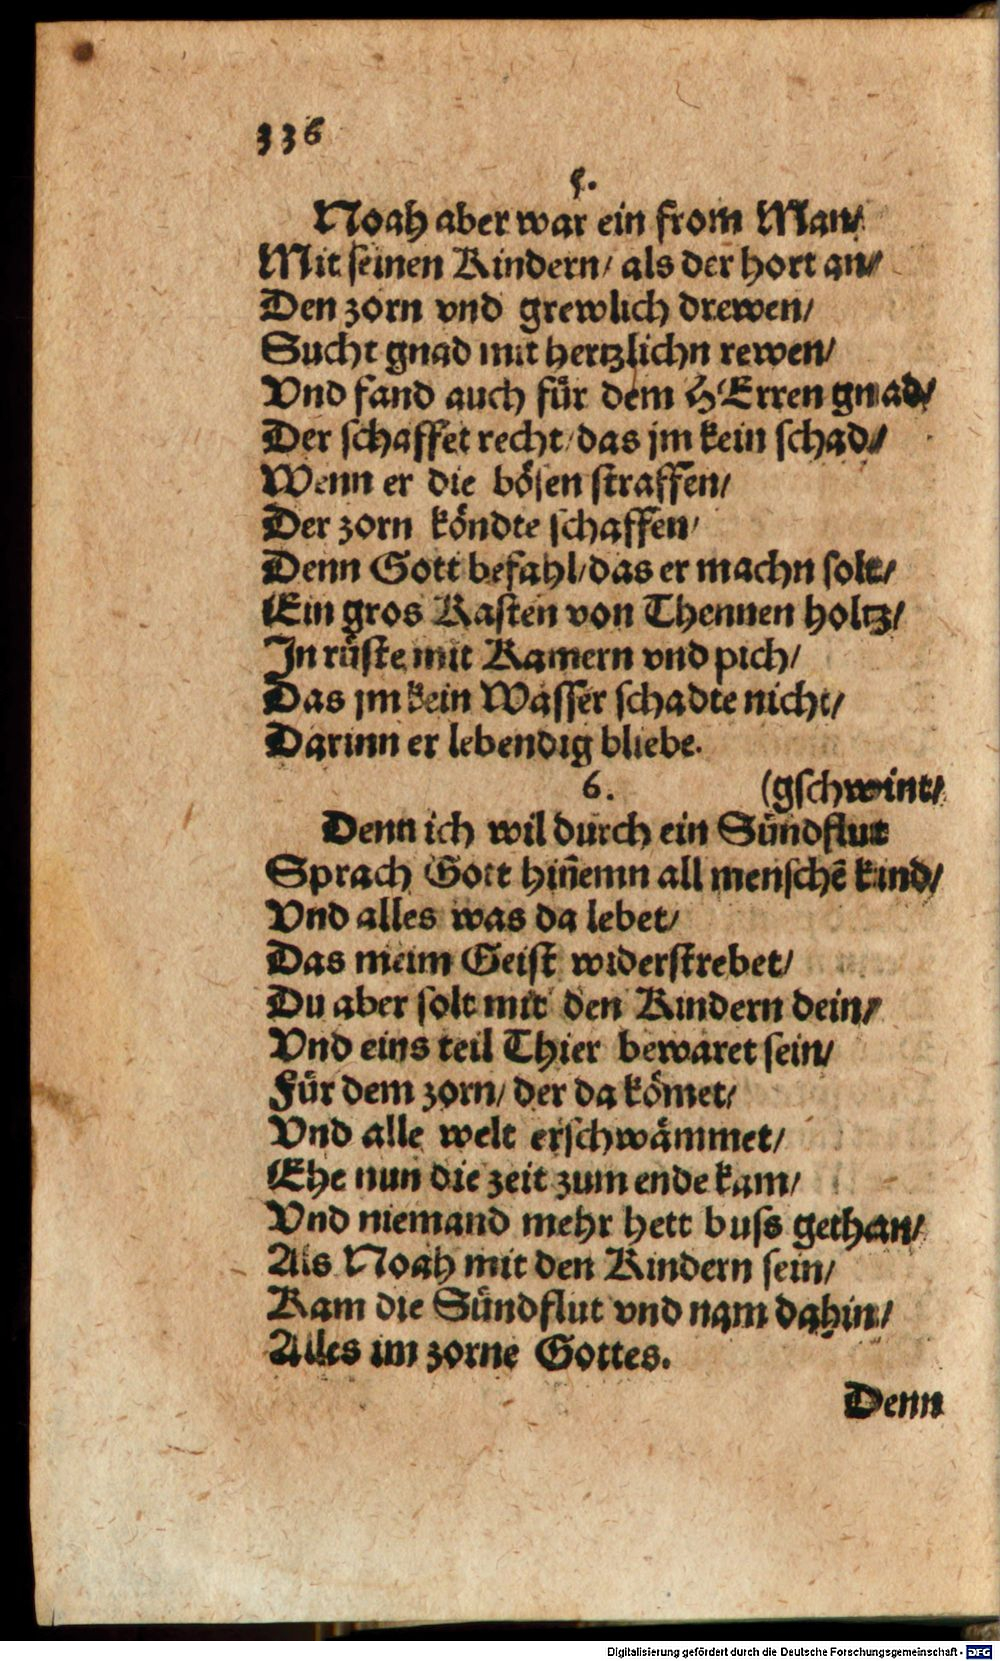 336
5.
Noah aber war ein from Man/
Mit seinen Kindern/ als der hort an/
Den zorn vnd grewlich drewen/
Sucht gnad mit hertzlichn rewen/
Vnd fand auch für dem HErren gnad/
Der schaffet recht/ das jm kein schad/
Wenn er die bösen straffen/
Der zorn köndte schaffen/
Denn Gott befahl/ das er machn solt/
Ein gros Kasten von Thennen holtz/
In rüste mit Kamern vnd pich/
Das jm kein Wasser schadte nicht/
Darinn er lebendig bliebe.
6. (gschwint/
Denn ich wil durch ein Sündflut
Sprach Gott hin̄emn all menschē kind/
Vnd alles was da lebet/
Das meim Geist widerstrebet/
Du aber solt mit den Kindern dein/
Vnd eins teil Thier bewaret sein/
Für dem zorn/ der da kömet/
Vnd alle welt erschwämmet/
Ehe nun die zeit zum ende kam/
Vnd niemand mehr hett buss gethan/
Als Noah mit den Kindern sein/
Kam die Sündflut vnd nam dahin/
Alles im zorne Gottes.
Denn
Digitalisierung gefördert durch die Deutsche Forschungsgemeinschaft - DFG